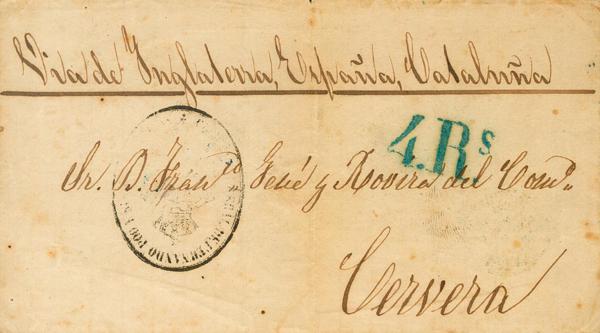 Via de Inglaterra, España, Cataluña
4.Rs
Sr. D. Franco. Jené y Rovira del Como.
FERNANDO POO
Cervera